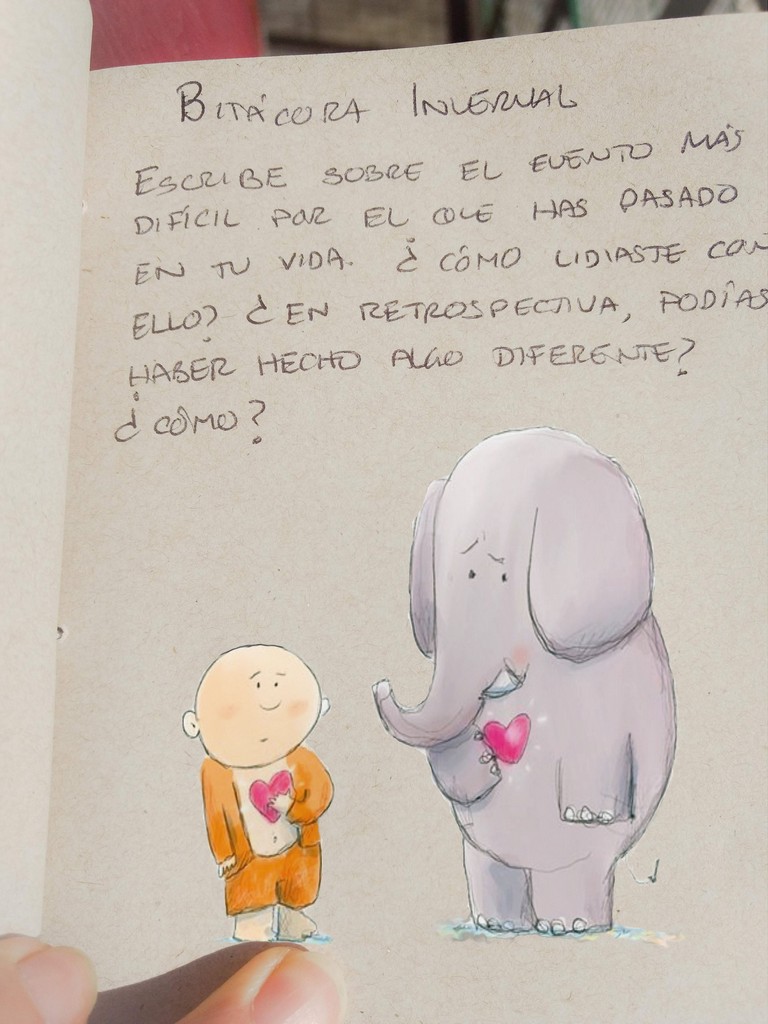 BITÁCORA INVERNAL
ESCRIBE SOBRE EL EVENTO MÁS
DIFÍCIL POR EL QUE HAS PASADO
EN TU VIDA. ¿CÓMO LIDIASTE CON
ELLO? ¿EN RETROSPECTIVA, PODÍAS
HABER HECHO ALGO DIFERENTE?
¿CÓMO?